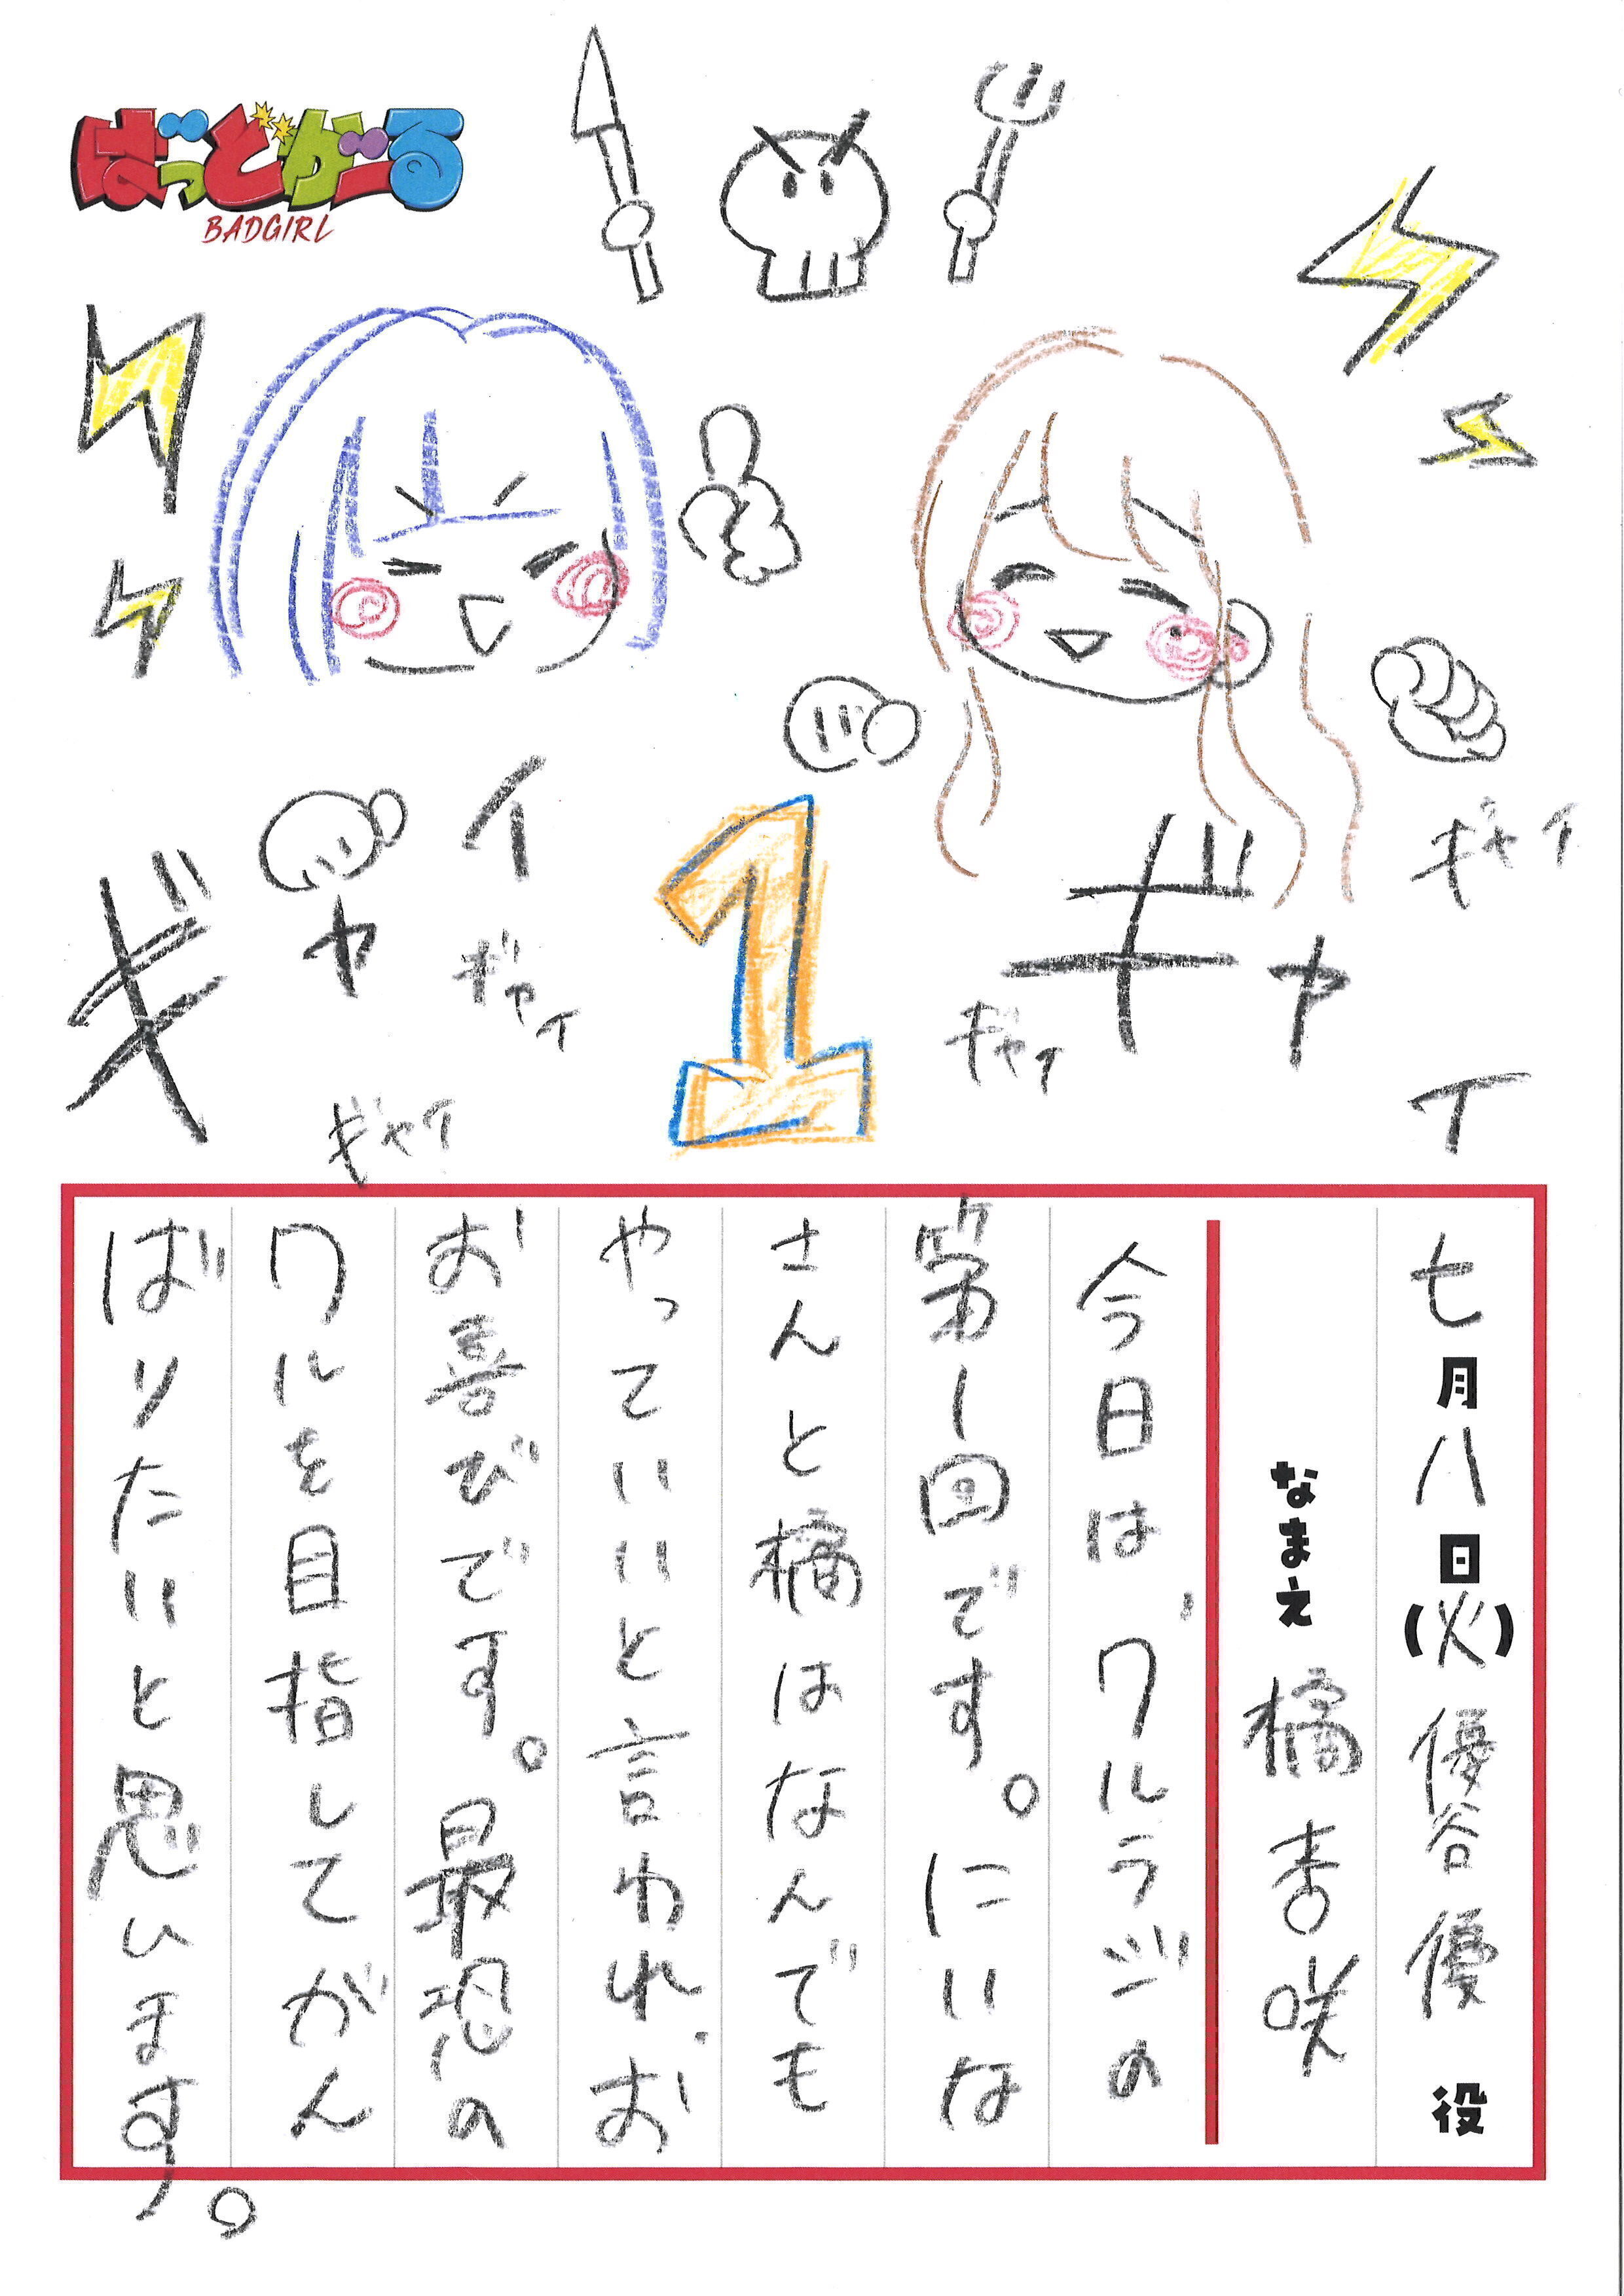 ばっどがーる
BADGIRL
ギャイ
ギャイ
ギャイ
ギャイ
ギャイ
ギャイ
1
七月八日(火)優谷優 役
なまえ 橘杏咲
今日は、ワルラジの
第1回です。にいな
さんと橘はなんでも
やっていいと言われ、お
お喜びです。最恐の
ワルを目指してがん
ばりたいと思います。